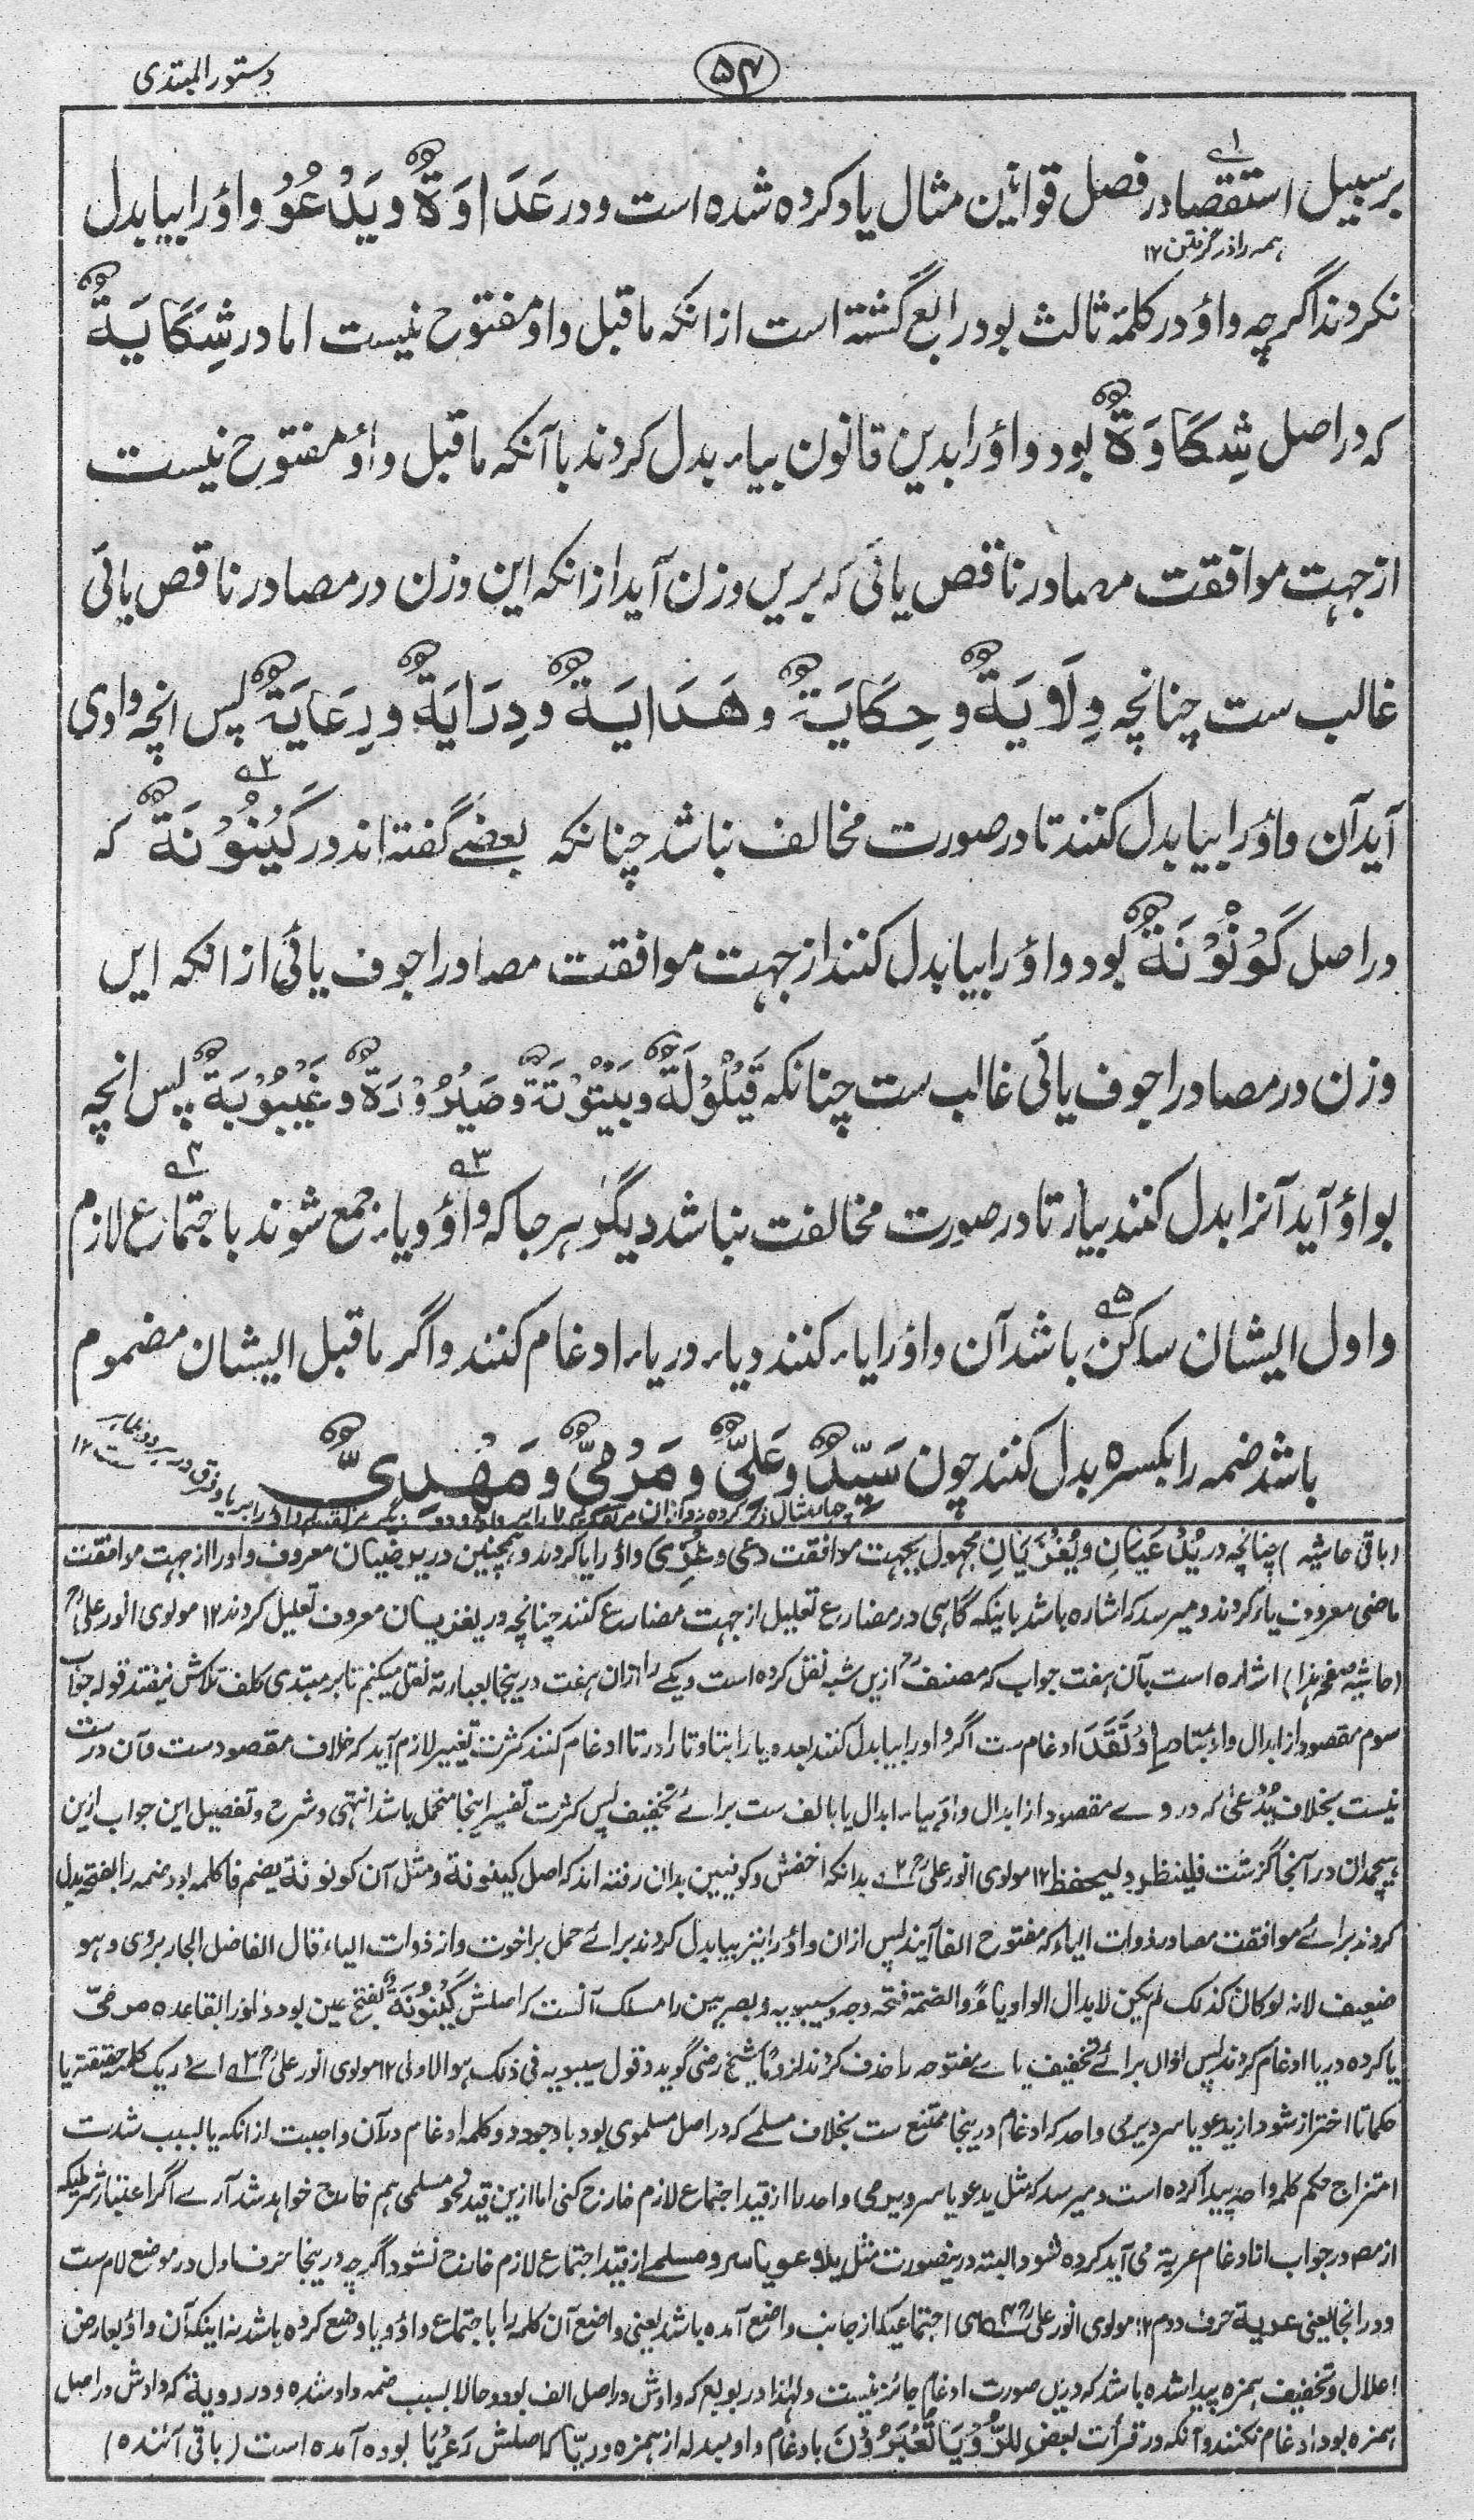 دستور المبتدی
۵۴
بر سبیل استقصا در فصل قوانین مثال یاد کرده شده است و در عَدَاوَةٌ و یَدْعُوُ واؤ را بیا بدل
همه را در گرفتن ۱۲
نکردند اگرچه واؤ در کلمهٔ ثالث بود رابع گشته است از انکه ماقبل واو مفتوح نیست اما در شِكَايَةٌ
که در اصل شِكَاوَةٌ بود واؤ را بدین قانون بیاء بدل کردند با آنکه ماقبل واؤ مفتوح نیست
از جهت موافقت مصادر ناقص یائی که بریں وزن آید از انکه این وزن در مصادر ناقص یائی
غالب ست چنانچه وِلَايَةٌ و حِكَايَةٌ و هَدَايَةٌ و دِرَايَةٌ و رِعَايَةٌ پس انچه وادی
آید آن واؤ را بیا بدل کنند تا در صورت مخالف نباشد چنانکه بعضے گفته اند در كَيْنُوْنَةٌ که
در اصل كُوْنُوْنَةٌ بود واؤ را بیا بدل کنند از جهت موافقت مصادر اجوف یائی از انکه ایں
وزن در مصادر اجوف یائی غالب ست چنانکه قَيْلُوْلَةٌ و بَيْتُوْتَةٌ و صَيْرُوْرَةٌ و غَيْبُوْبَةٌ پس انچه
بواؤ آید آنرا بدل کنند بیاء تا در صورت مخالفت نباشد دیگر هر جا که واؤ و یاء جمع شوند باجتماع لازم
و اول ایشان ساکن باشد آن واؤ را یاء کنند و یاء در یاء ادغام کنند و اگر ماقبل ایشان مضموم
باشد ضمه را بکسره بدل کنند چون سَيِّدٌ و عَلِيٌّ و مَرْمِيٌّ و مَهْدِيٌّ
(باقی حاشیه) چنانچه در يُدْعَيَانِ و يُغْزَيَانِ مجهول بجهت موافقت دعی و غُزِیَ واؤ را یا کردند و همچنین در یرضیان معروف واو را از جهت موافقت
ماضی معروف یاء کردند و میرسد که اشاره باشد باینکه گاهی در مضارع تعلیل از جهت مضارع کنند چنانچه در یغزیان معروف تعلیل کردند ۱۲ مولوی انور علی
(حاشیه صفحه هذا) اشاره است بآن هفت جواب که مصنف ازیں شبه نقل کرده است و یکے را ازان هفت درینجا بعبارته نقل میکنم تا بر مبتدی کلفت تلاش نیفتد قوله جواب
سوم مقصود از ابدال واؤ بتا در اِوْتَقَدَ ادغام ست اگر واو را بیا بدل کنند بعده یا را بتا و تا را در تا ادغام کنند کثرت تغییر لازم آید که خلاف مقصودست و آن درست
نیست بخلاف يُدْعٰی که در وے مقصود از ابدال واؤ بیاء ابدال یا بالف ست برائے تخفیف پس کثرت تغییر اینجا متحمل باشد انتهی و شرح و تفصیل این جواب ازین
هیچمدان در آنجا گزشت فلینظر ولیحفظ ۱۲ مولوی انور علی بدانکه اخفش و کوفیین بدان رفته اند که اصل کینونة و مثل آن کونونة بضم فا کلمه بود ضمه را بفتحه بدل
کردند برائے موافقت مصادر ذوات الیاء که مفتوح الفا آیند پس ازان واؤ را نیز بیا بدل کردند برائے حمل بر اخوت واز ذوات الیاء قال الفاضل الجاربردی و هو
ضعیف لانه لو کان کذلک لم یکن لابدال الواو یاءً والضمة فتحه وجه و سیبویه و بصریین را مسلک آنست که اصلش كَيْنُوْنَة بفتح عین بود واؤ را بقاعده مرمیّ
یا کرده در یا ادغام کردند پس ازان برائے تخفیف یاے مفتوحه را حذف کردند شیخ رضی گوید و قول سیبویه فی ذلک هو الاولی ۱۲ مولوی انور علی اے در یک کلمه حقیقتة یا
حکما تا احتراز شود از یدعو یاسر و یرمی واحد که ادغام درینجا ممتنع ست بخلاف مسلمے که در اصل مسلموی بود باوجود دو کلمه ادغام درآن واجبست از انکه یا بسبب شدت
امتزاج حکم کلمهٔ واحد پیدا کرده است و میرسد که مثل یدعو یاسر و یرمی واحد را از قید اجتماع لازم خارج کنی اما ازین قید نحو مسلمی هم خارج خواهد شد آرے اگر اعتبار شرطیکه
از مصـ در جواب ادغام عریة می آید کرده شود البته درینصورت مثل یدعو یاسر و مسلمے از قید اجتماع لازم خارج نشود اگرچه درینجا حرف اول در موضع لام ست
و در انجا یعنی عویة حرف دوم ۱۲ مولوی انور علی ای اجتماعیکه از جانب واضع آمده باشد یعنی واضع آن کلمه را باجتماع واؤ و یا وضع کرده باشد نه اینکه آن واؤ بعارض
اعلال و تخفیف همزه پیدا شده باشد که دریں صورت ادغام جائز نیست ولهذا در بویع که واوش در اصل الف بود و حالا بسبب ضمه واو شده و در رویة که واوش در اصل
همزه بود ادغام نکنند و آنکه در قرأت بعض لِلرُّؤْيَا تَعْبُرُوْنَ بادغام واو مبدله از همزه و ریّا که اصلش رِءْيًا بوده آمده است (باقی آئنده)